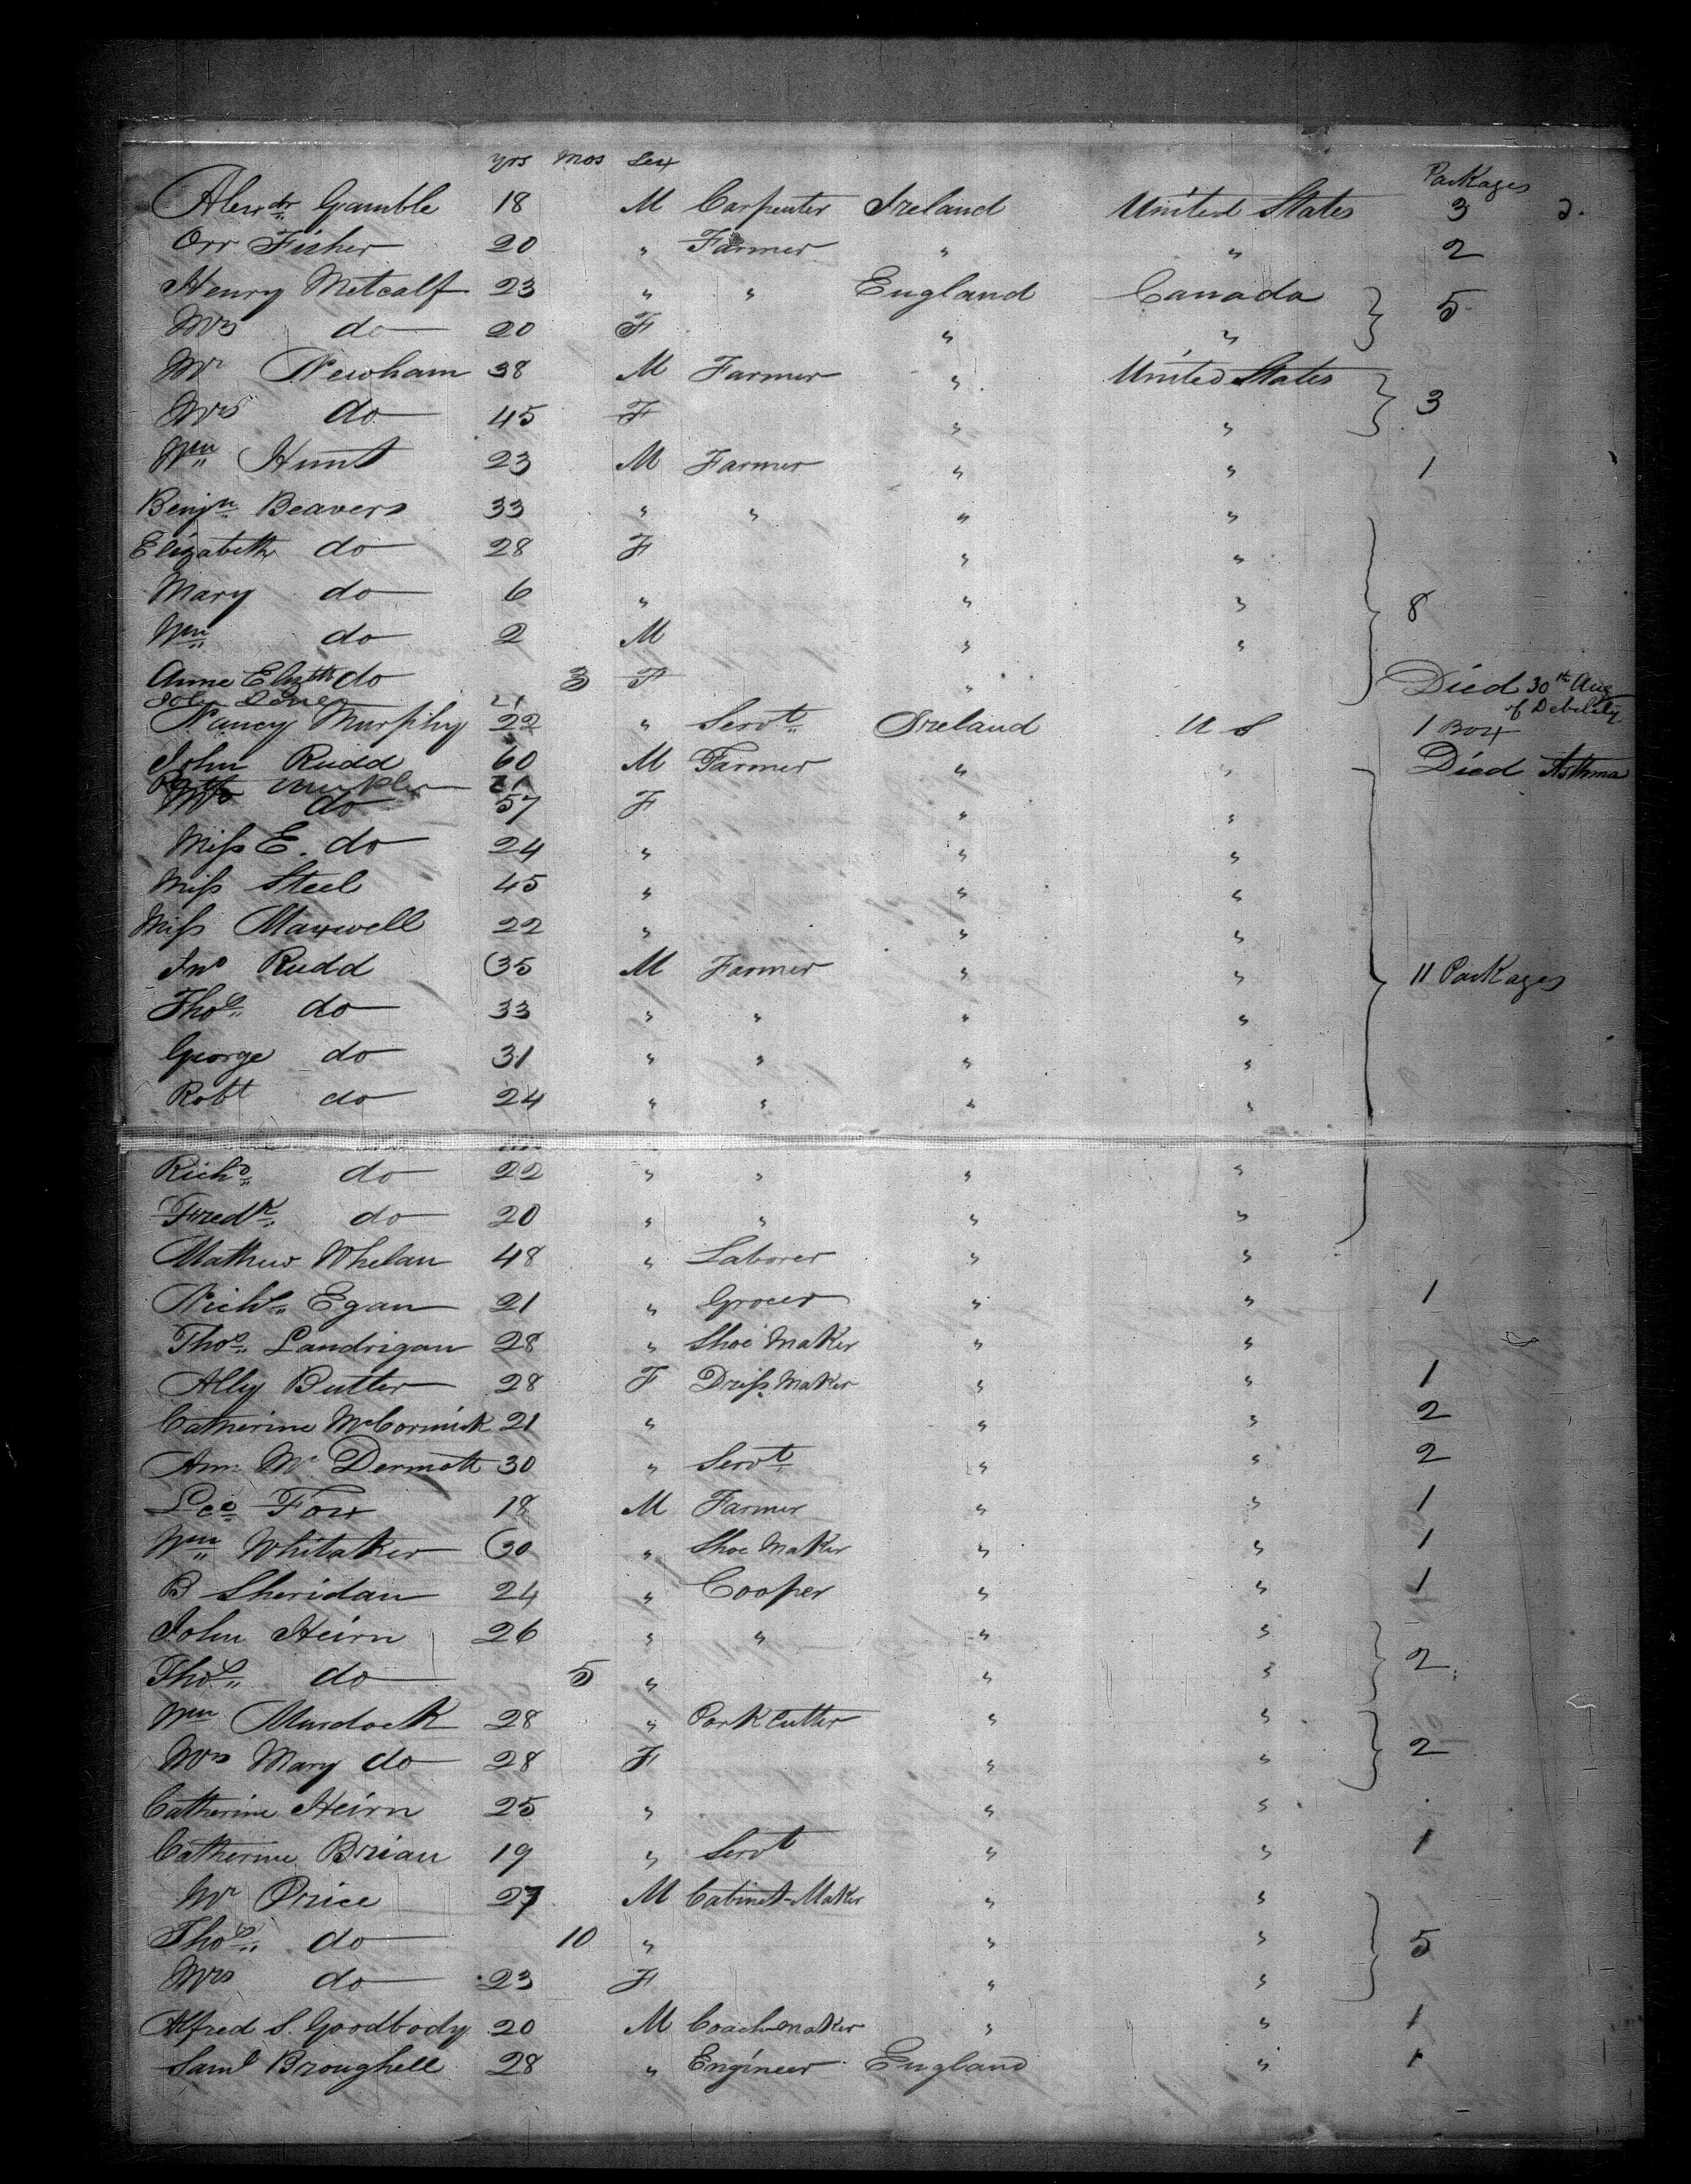 yrs mos Sex Packages
Alexdr Gamble 18 M Carpenter Ireland United States 3 2.
Orr Fisher 20 " Farmer " " 2
Henry Metcalf 23 " " England Canada 5
Mrs do 20 F " "
Mr Newham 38 M Farmer " United States 3
Mrs do 45 F " "
Wm Hunt 23 M Farmer " " 1
Benjn Beavers 33 " " " "
Elizabeth do 28 F " "
Mary do 6 " " " 8
Wm do 2 M " "
Anne Elizth do 3 F " Died 30th Aug
of Debility
John 21
Nancy Murphy 22 " Servt Ireland U S 1 Box
John Rudd 60 M Farmer " " Died Asthma
21
Mrs do 57 F " "
Miss E. do 24 " " "
Miss Steel 45 " " "
Miss Maxwell 22 " " "
Jno Rudd 35 M Farmer " " 11 Packages
Thos do 33 " " " "
George do 31 " " " "
Robt do 24 " " " "
Richd do 22 " " " "
Fredk do 20 " " " "
Mathew Whelan 48 " Laborer " "
Nichs Egan 21 " Grocer " " 1
Thos Landrigan 28 " Shoe Maker " "
Ally Butler 28 F Dress Maker " " 1
Catherine McCormick 21 " " " 2
Ann Mc Dermott 30 " Servt " " 2
Leo Fox 18 M Farmer " " 1
Wm Whitaker 30 " Shoe Maker " " 1
B Sheridan 24 " Cooper " " 1
John Heirn 26 " " " "
Thos do 5 " " " 2
Wm Murdock 28 " Cork Cutter " "
Mrs Mary do 28 F " " 2
Catherine Heirn 25 " " "
Catherine Brian 19 " Servt " " 1
Mr Price 27 M Cabinet-Maker " "
Thos do 10 " " " 5
Mrs do 23 F " "
Alfred S. Goodbody 20 M Coachmaker " " 1
Saml Broughell 28 " Engineer England " 1